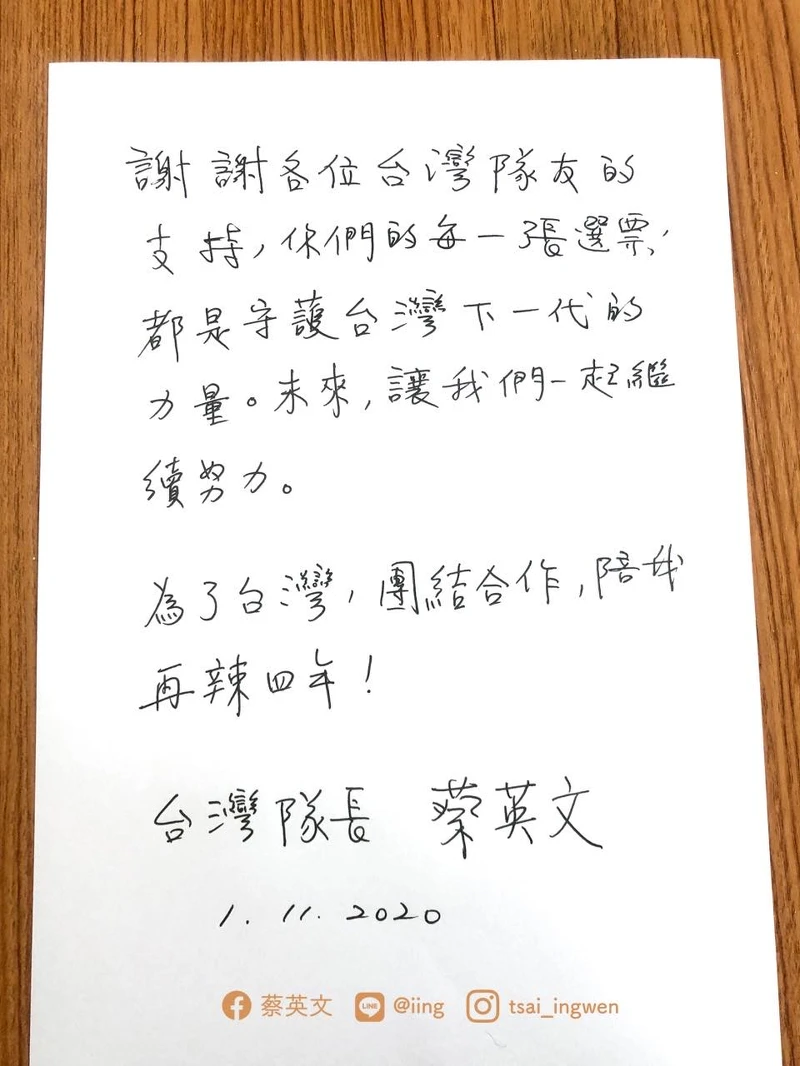 謝謝各位台灣隊友的
支持,你們的每一張選票,
都是守護台灣下一代的
力量。未來,讓我們一起繼
續努力。
為了台灣,團結合作,陪我
再辣四年!
台灣隊長 蔡英文
1. 11. 2020
蔡英文 LINE @iing tsai_ingwen